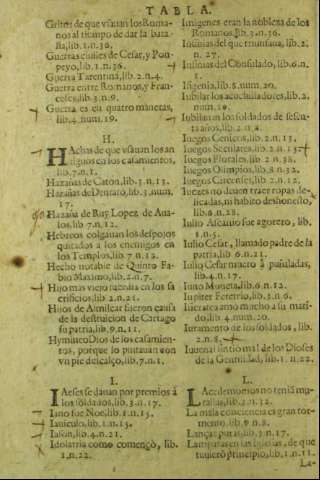 TABLA.
Gritos de que vsauan los Roma-
nos al tiempo de dar la bata-
lla, lib.1.n.36.
Guerras ciuiles de Cesar, y Pon-
peyo, lib.1.n.36.
Guerra Tarentina, lib.2.n.4.
Guerra entre Romanos, y Fran-
ceses, lib.3.n.9.
Guerra es en quatro maneras,
lib.4.num.19.
H.
HAchas de que vsauan los an
tiguos en los casamientos,
lib.7.n.1.
Hazañas de Caton, lib.3.n.13.
Hazañas de Dentato, lib.3.num.
17.
Hazaña de Ruy Lopez de Aua-
los, lib.7.n.12.
Hebreos colgauan los despojos
quitados a los enemigos en
los Templos, lib.7.n.12.
Hecho notable de Quinto Fa-
bio Maximo, lib.2.n.7.
Hijo mas viejo
crificios, lib.2.n.21.
Hijos de Amilcar fueron causa
de la destruicion de Cartago
su patria, lib.9.n.11.
Hymineo Dios de los casamien-
tos, porque lo pintauan con
vn pie descalço, lib.7.n.1.
I.
IAeses se dauan por premios à
los soldados, lib.3.n.17.
Iano fue Noe, lib.1.n.15.
Ianiculo, lib.1.n.15.
lib.4.n.21.
Idolatria como començò, lib.
1.n.22.
Imigenes eran la nobleza de los
Romanos, lib.3.n.36.
Insinias del que triunfaua, lib.2.
n.27.
Insinias del Consulado, lib.6.n.
1.
Ifigenia, lib.5.num.20.
Iubilar los acuchilladores, lib.2.
num.19.
Iubilauan los soldados de sesen-
ta años, lib.2.n.8.
Iuegos Cereales, lib.2.n.13.
Iuegos Seculares, lib.2.n.13
Iuegos Florales, lib.2.n.38.
Iuegos Olimpios, lib.8.n.32.
Iuegos Circenses, lib.2.n.12.
Iuezes no deuen traer ropas de-
licadas, ni habito deshonesto,
lib.6.n.28.
Iulio Ascanio fue agorero, lib.
1.n.5.
Iulio Cesar, llamado padre de la
patria, lib.6.n.21.
Iulio Cesar muriò à puñaladas,
lib.4.n.17.
Iuno Moneta, lib.6.n.12.
Iupiter Feretrio, lib.3.n.6.
amo mucho a su mari-
do, lib.4.num.20.
Iuramento de los soldados, lib.
2.n.8.
Iuuenal sintiò mal de los Dioses
de la Gentilidad, lib.1.n.22.
L.
LAcedemonios no tenia mu-
rallas, lib.3.n.12.
La mala conciencia es gran tor-
mento, lib.9.n.8.
Lançar putas, lib.3.n.17.
Lamparas en las Iglesias, de que
tuuiero principio, lib.1.n.11.
La-